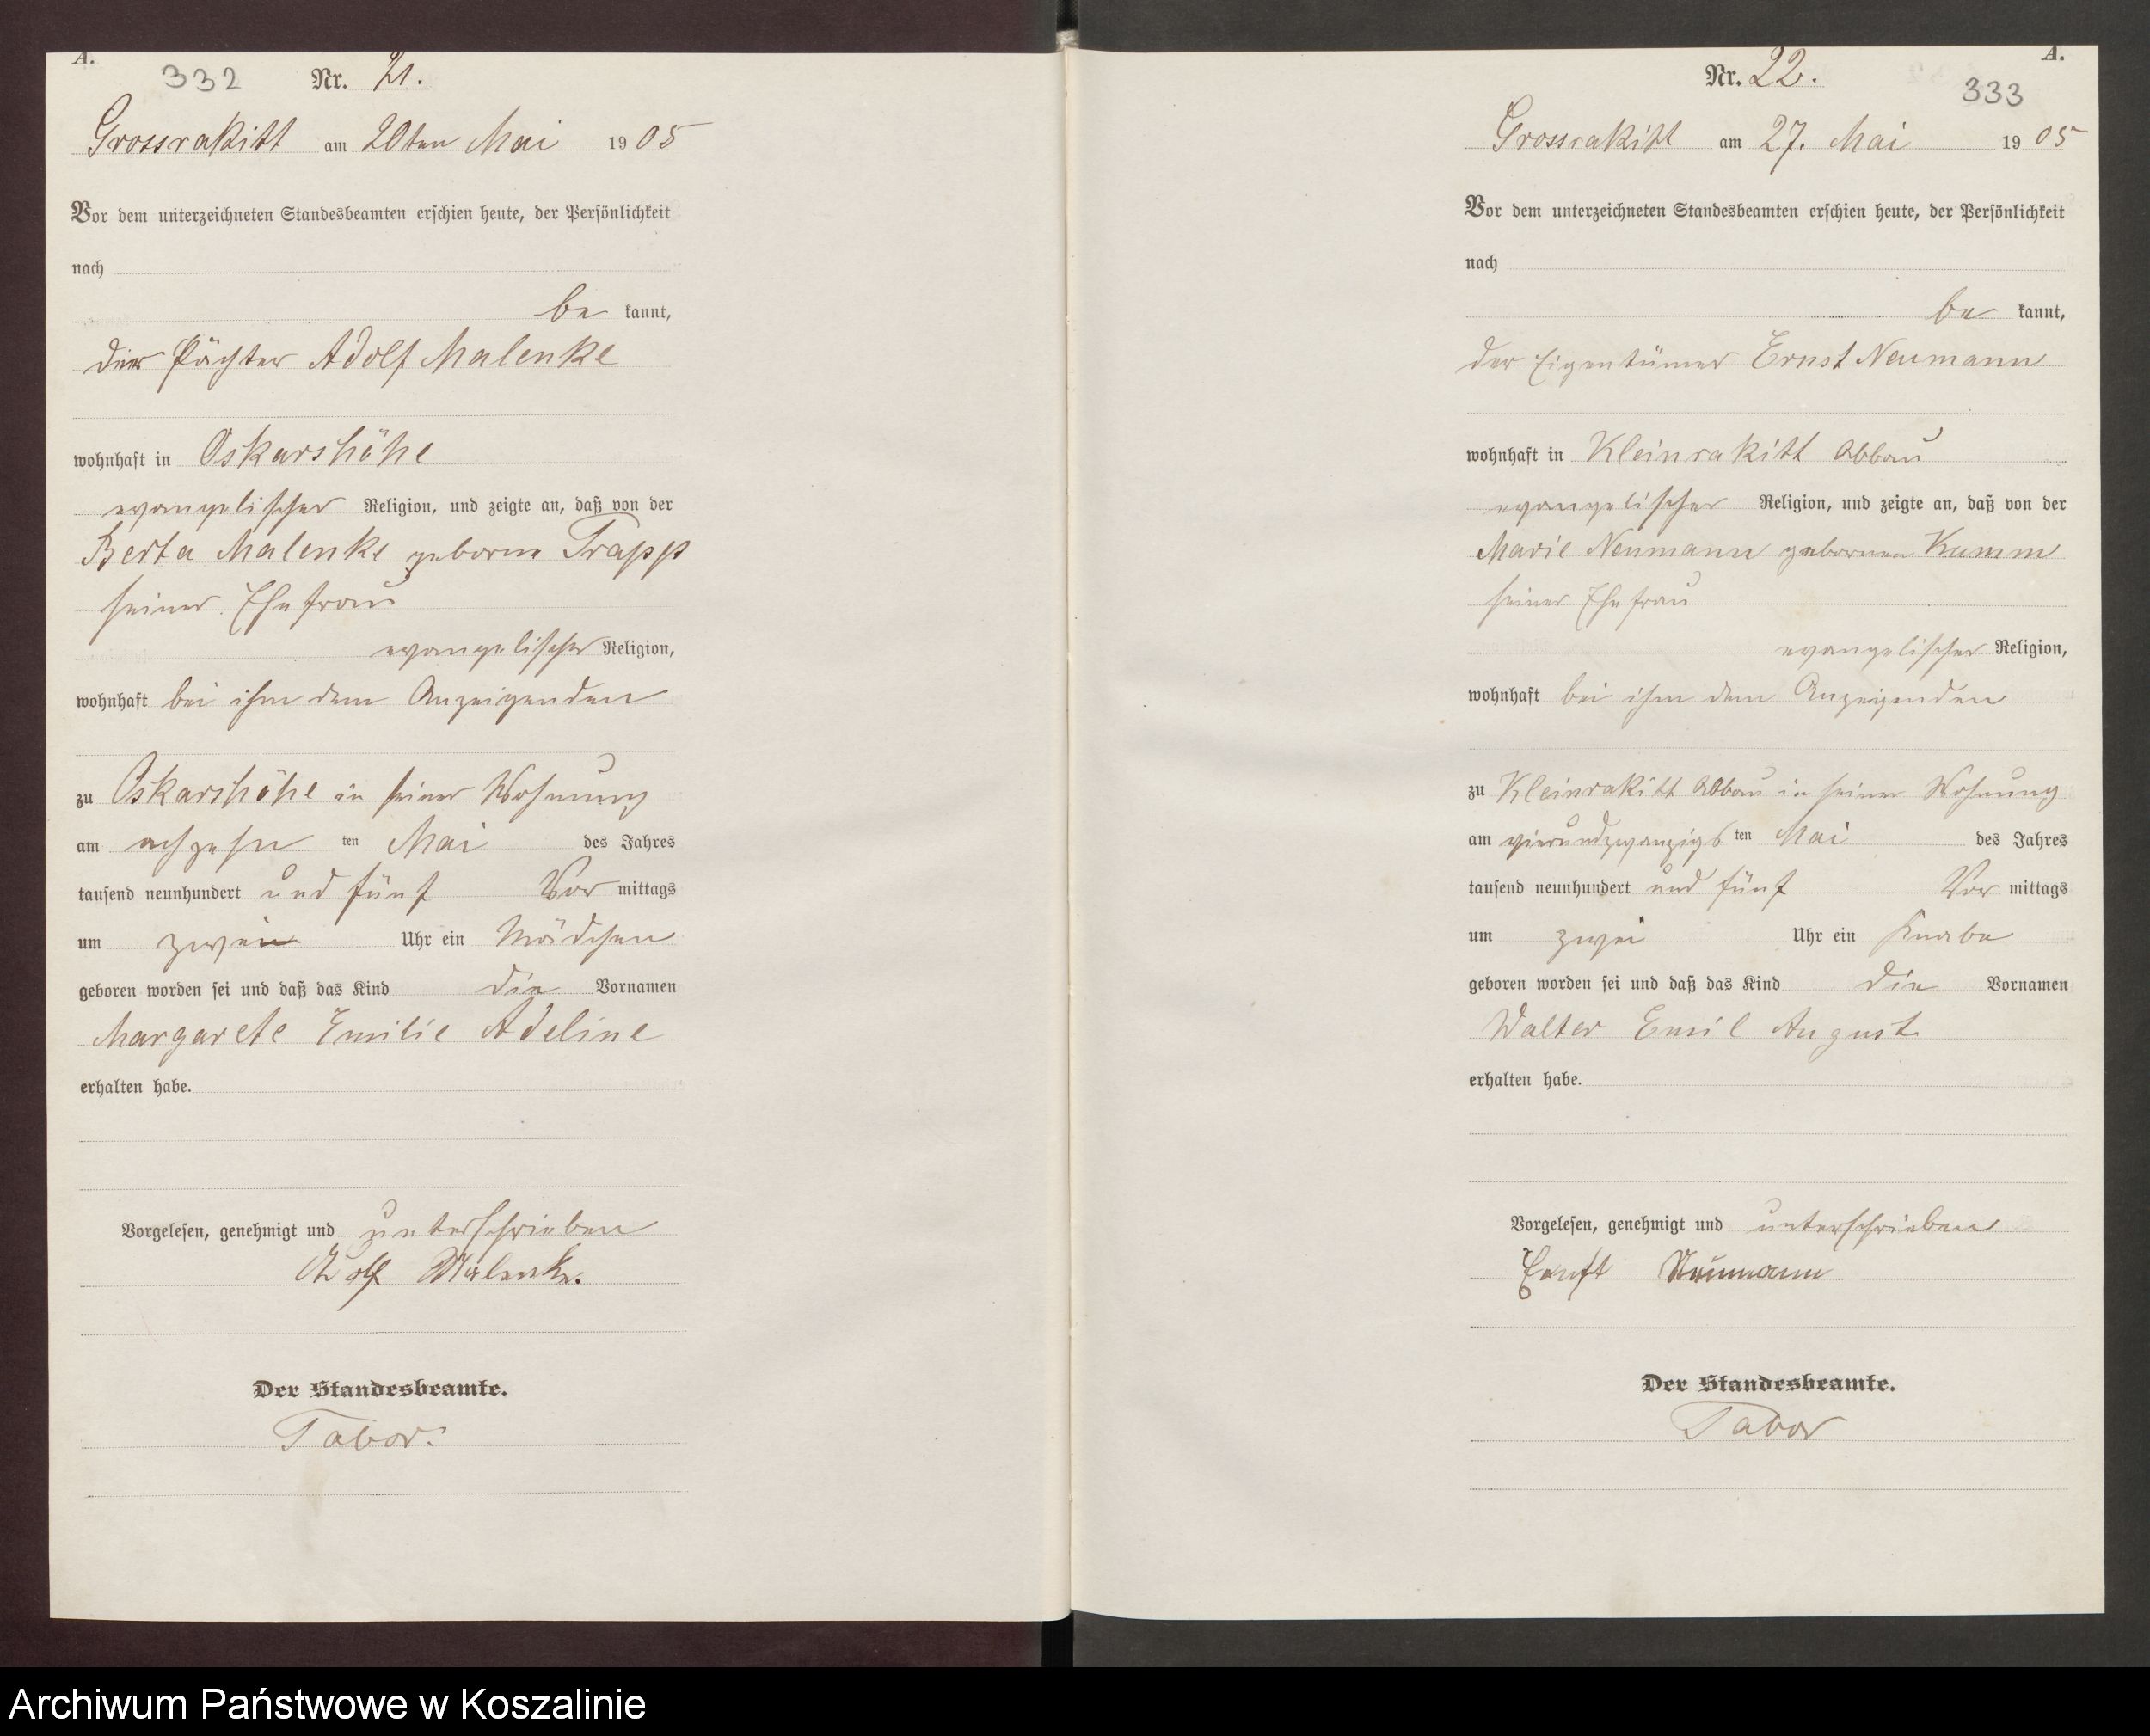 A.
332 Nr. 21.
Grossrakitt am 20ten Mai 1905
Vor dem unterzeichneten Standesbeamten erschien heute, der Persönlichkeit
nach
be kannt,
der Pächter Adolf Malenke
wohnhaft in Oskarshöhe
evangelischer Religion, und zeigte an, daß von der
Berta Malenke geborne Trapp
seiner Ehefrau
evangelischer Religion,
wohnhaft bei ihm dem Anzeigenden
zu Oskarshöhe in seiner Wohnung
am achzehn ten Mai des Jahres
tausend neunhundert und fünf Vor mittags
um zwei Uhr ein Mädchen
geboren worden sei und daß das Kind die Vornamen
Margarete Emilie Adeline
erhalten habe.
Vorgelesen, genehmigt und unterschrieben
Adolf Malenke.
Der Standesbeamte.
Tabor.
A.
Nr. 22.
333
Grossrakitt am 27. Mai 1905
Vor dem unterzeichneten Standesbeamten erschien heute, der Persönlichkeit
nach
be kannt,
der Eigentümer Ernst Neumann
wohnhaft in Kleinrakitt Abbau
evangelischer Religion, und zeigte an, daß von der
Marie Neumann gebornen Kumm
seiner Ehefrau
evangelischer Religion,
wohnhaft bei ihm dem Anzeigenden
zu Kleinrakitt Abbau in seiner Wohnung
am vierundzwanzigs ten Mai des Jahres
tausend neunhundert und fünf Vor mittags
um zwei Uhr ein Knabe
geboren worden sei und daß das Kind die Vornamen
Walter Emil August
erhalten habe.
Vorgelesen, genehmigt und unterschrieben
Ernst Neumann
Der Standesbeamte.
Tabor
Archiwum Państwowe w Koszalinie